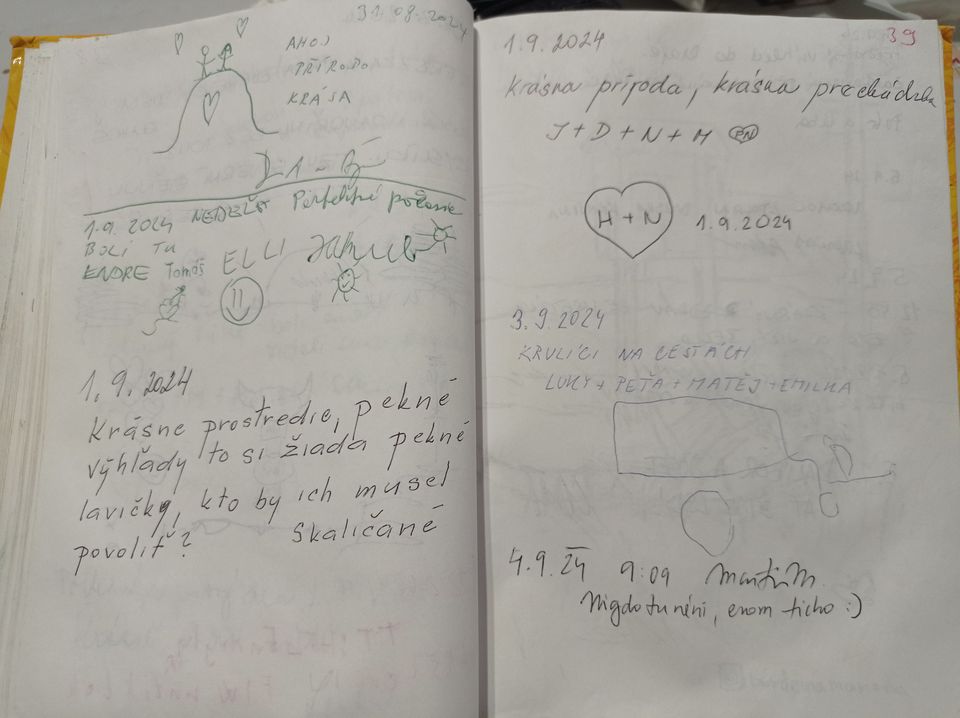 31.08.2024
AHOJ
PŘÍRODO
KRÁSA
1.9.2024 NEDEĽA Perfektné počasie
BOLI TU
ENDRE Tomáš ELLI Jakub
1.9.2024
Krásne prostredie, pekné
výhľady to si žiada pekné
lavičky, kto by ich musel
povoliť? Skaličané
39
1.9.2024
Krásna príroda, krásna prechádzka
J+D+N+M
H+N 1.9.2024
3.9.2024
KRULICI NA CESTÁCH
LUKY+PEŤA+MATĚJ+EMILKA
4.9.24 9:09
Nigdo tu néni, enom ticho :)